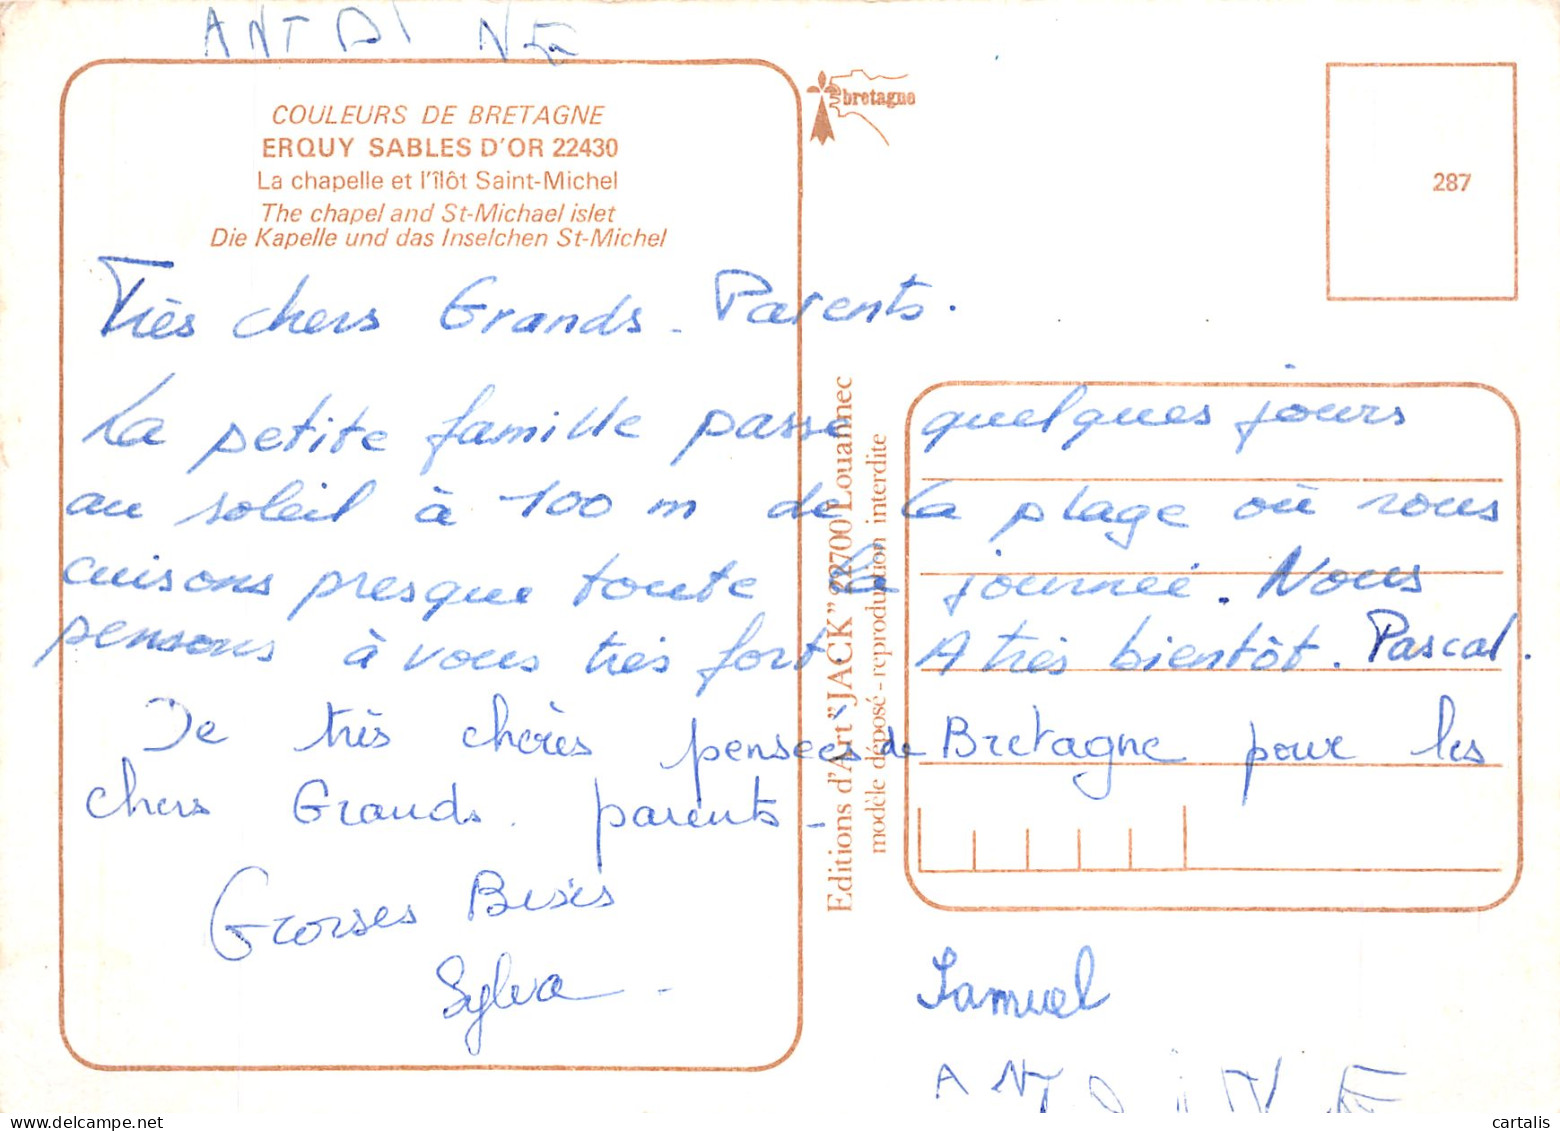 ANTOINE
COULEURS DE BRETAGNE
ERQUY SABLES D'OR 22430
La chapelle et l'îlôt Saint-Michel
The chapel and St-Michael islet
Die Kapelle und das Inselchen St-Michel
bretagne
287
Très chers Grands-Parents.
La petite famille passe quelques jours
au soleil à 100 m de la plage où nous
cuisons presque toute la journée. Nous
pensons à vous très fort. A très bientôt. Pascal.
De très chères pensées de Bretagne pour les
chers Grands-parents -
Grosses Bises
Sylva
Editions d'Art "JACK" 22700 Louannec
modèle déposé - reproduction interdite
Samuel
ANTOINE
cartalis